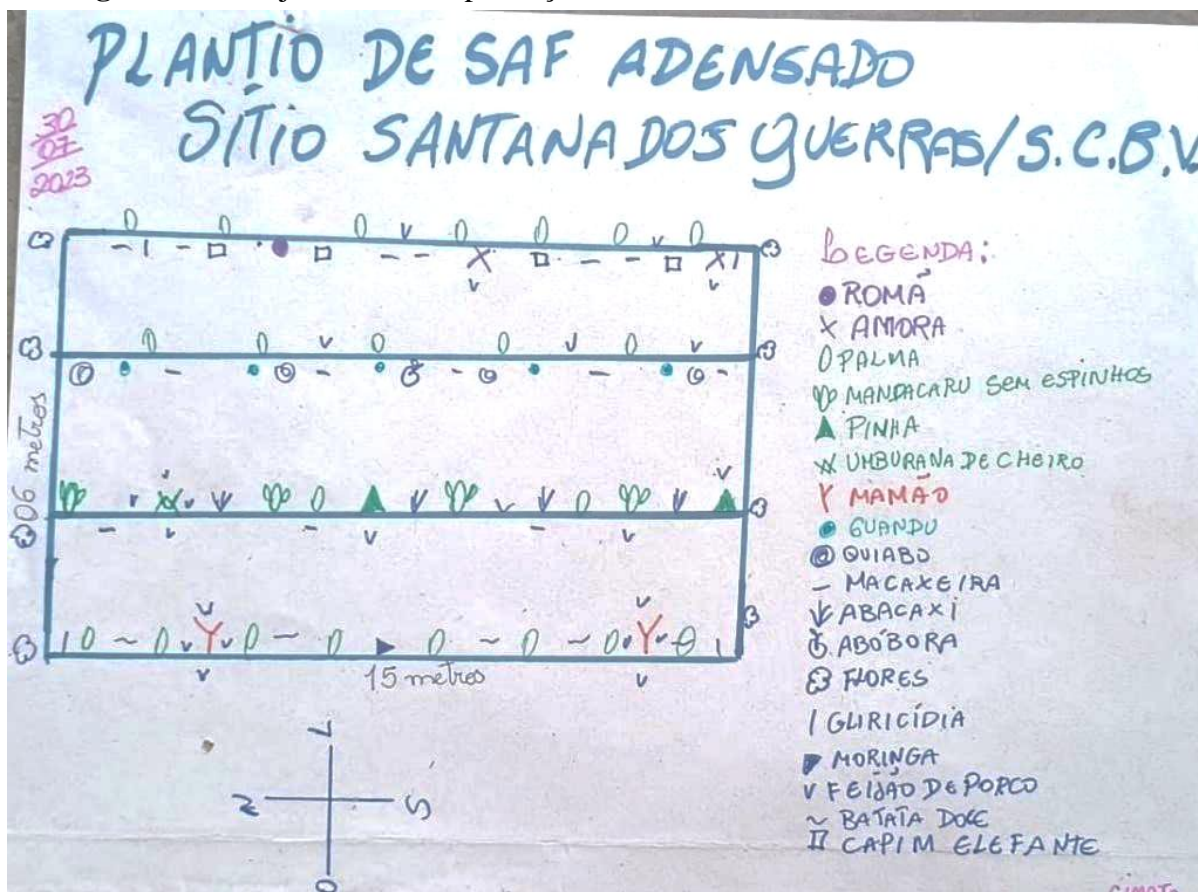 PLANTIO DE SAF ADENSADO
SÍTIO SANTANA DOS GUERRAS/S.C.B.V.
30
07
2023
LEGENDA:
ROMÃ
AMORA
PALMA
MANDACARU SEM ESPINHOS
PINHA
UMBURANA DE CHEIRO
MAMÃO
GUANDU
QUIABO
MACAXEIRA
ABACAXI
ABÓBORA
FLORES
GLIRICÍDIA
MORINGA
FEIJÃO DE PORCO
BATATA DOCE
CAPIM ELEFANTE
06 metros
15 metros
L
N
S
O